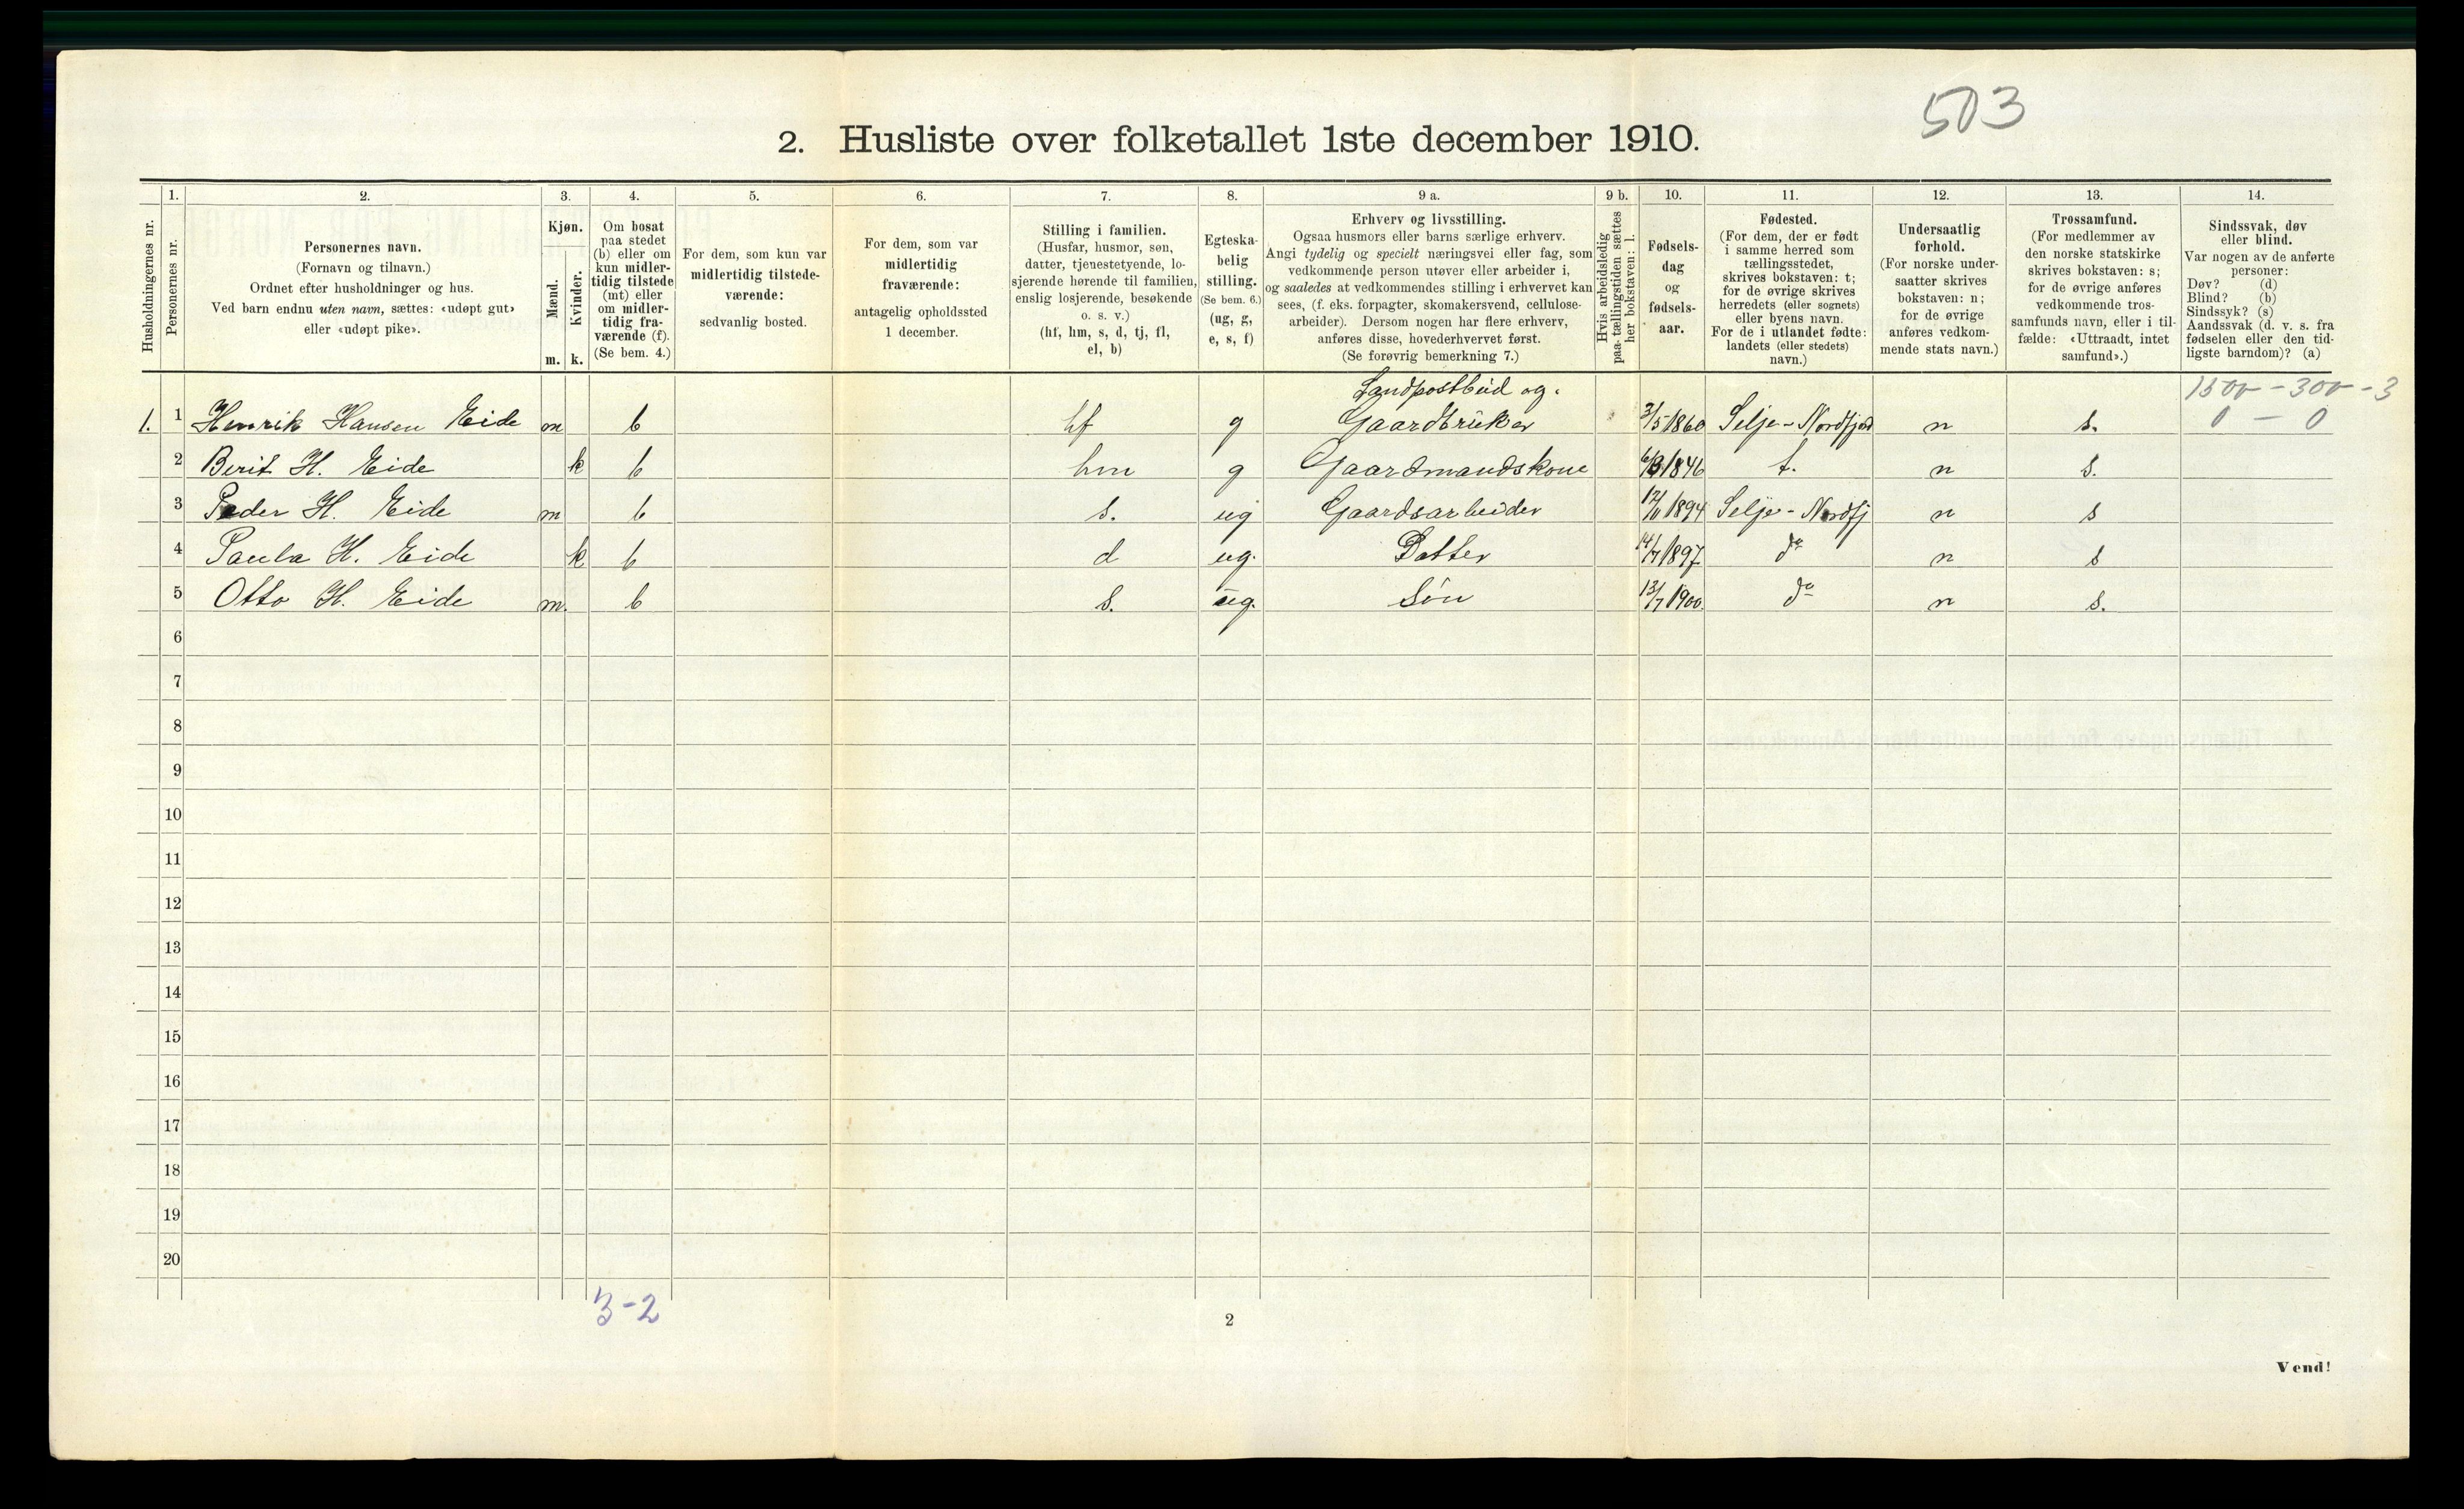 503
2. Husliste over folketallet 1ste december 1910.
Husholdningernes nr.
1.
Personernes nr.
2.
Personernes navn.
(Fornavn og tilnavn.)
Ordnet efter husholdninger og hus.
Ved barn endnu uten navn, sættes: «udøpt gut»
eller «udøpt pike».
3.
Kjøn.
Mænd.
Kvinder.
m. k.
4.
Om bosat
paa stedet
(b) eller om
kun midler-
tidig tilstede
(mt) eller
om midler-
tidig fra-
værende (f).
(Se bem. 4.)
5.
For dem, som kun var
midlertidig tilstede-
værende:
sedvanlig bosted.
6.
For dem, som var
midlertidig
fraværende:
antagelig opholdssted
1 december.
7.
Stilling i familien.
(Husfar, husmor, søn,
datter, tjenestetyende, lo-
sjerende hørende til familien,
enslig losjerende, besøkende
o. s. v.)
(hf, hm, s, d, tj, fl,
el, b)
8.
Egteska-
belig
stilling.
(Se bem. 6.)
(ug, g,
e, s, f)
9 a.
Erhverv og livsstilling.
Ogsaa husmors eller barns særlige erhverv.
Angi tydelig og specielt næringsvei eller fag, som
vedkommende person utøver eller arbeider i,
og saaledes at vedkommendes stilling i erhvervet kan
sees, (f. eks. forpagter, skomakersvend, cellulose-
arbeider). Dersom nogen har flere erhverv,
anføres disse, hovederhvervet først.
(Se forøvrig bemerkning 7.)
9 b.
Hvis arbeidsledig
paa tællingstiden sættes
her bokstaven: l.
10.
Fødsels-
dag
og
fødsels-
aar.
11.
Fødested.
(For dem, der er født
i samme herred som
tællingsstedet,
skrives bokstaven: t;
for de øvrige skrives
herredets (eller sognets)
eller byens navn.
For de i utlandet fødte:
landets (eller stedets)
navn.)
12.
Undersaatlig
forhold.
(For norske under-
saatter skrives
bokstaven: n;
for de øvrige
anføres vedkom-
mende stats navn.)
13.
Trossamfund.
(For medlemmer av
den norske statskirke
skrives bokstaven: s;
for de øvrige anføres
vedkommende tros-
samfunds navn, eller i til-
fælde: «Uttraadt, intet
samfund».)
14.
Sindssvak, døv
eller blind.
Var nogen av de anførte
personer:
Døv? (d)
Blind? (b)
Sindssyk? (s)
Aandssvak (d. v. s. fra
fødselen eller den tid-
ligste barndom)? (a)
Landpostbud og 1500 - 300 - 3
1. 1 Henrik Hansen Eide m b hf g Gaardbruker 3/5 1860 Selje - Nordfjord n s. 0 - 0
2 Berit H. Eide k b hm g Gaardmandskone 1846 t. n s.
3 Peder H. Eide m b s. ug Gaardsarbeider 1894 Selje - Nordfj n s
4 Paula H. Eide k b d ug. Datter 14/7 1897 do n s
5 Otto H. Eide m. b s. ug. Søn 13/7 1900. do n s.
6
7
8
9
10
11
12
13
14
15
16
17
18
19
20
3-2
2
Vend!